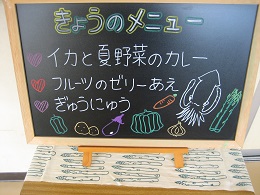 きょうのメニュー
イカと夏野菜のカレー
フルーツのゼリーあえ
ぎゅうにゅう